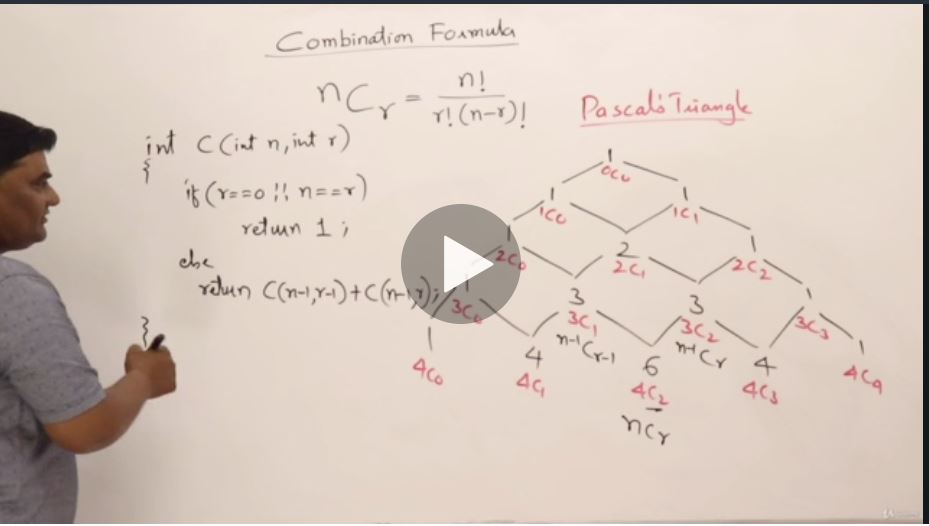 Combination Formula
nCr = n! / r!(n-r)!
Pascal's Triangle
int C(int n, int r)
{
if(r==0 || n==r)
return 1;
else
return C(n-1,r-1)+C(n-1,r);
}
1
0C0
1 1
1C0 1C1
1 2 1
2C0 2C1 2C2
1 3 3 1
3C0 3C1 3C2 3C3
n-1Cr-1 n-1Cr
1 4 6 4 1
4C0 4C1 4C2 4C3 4C4
nCr